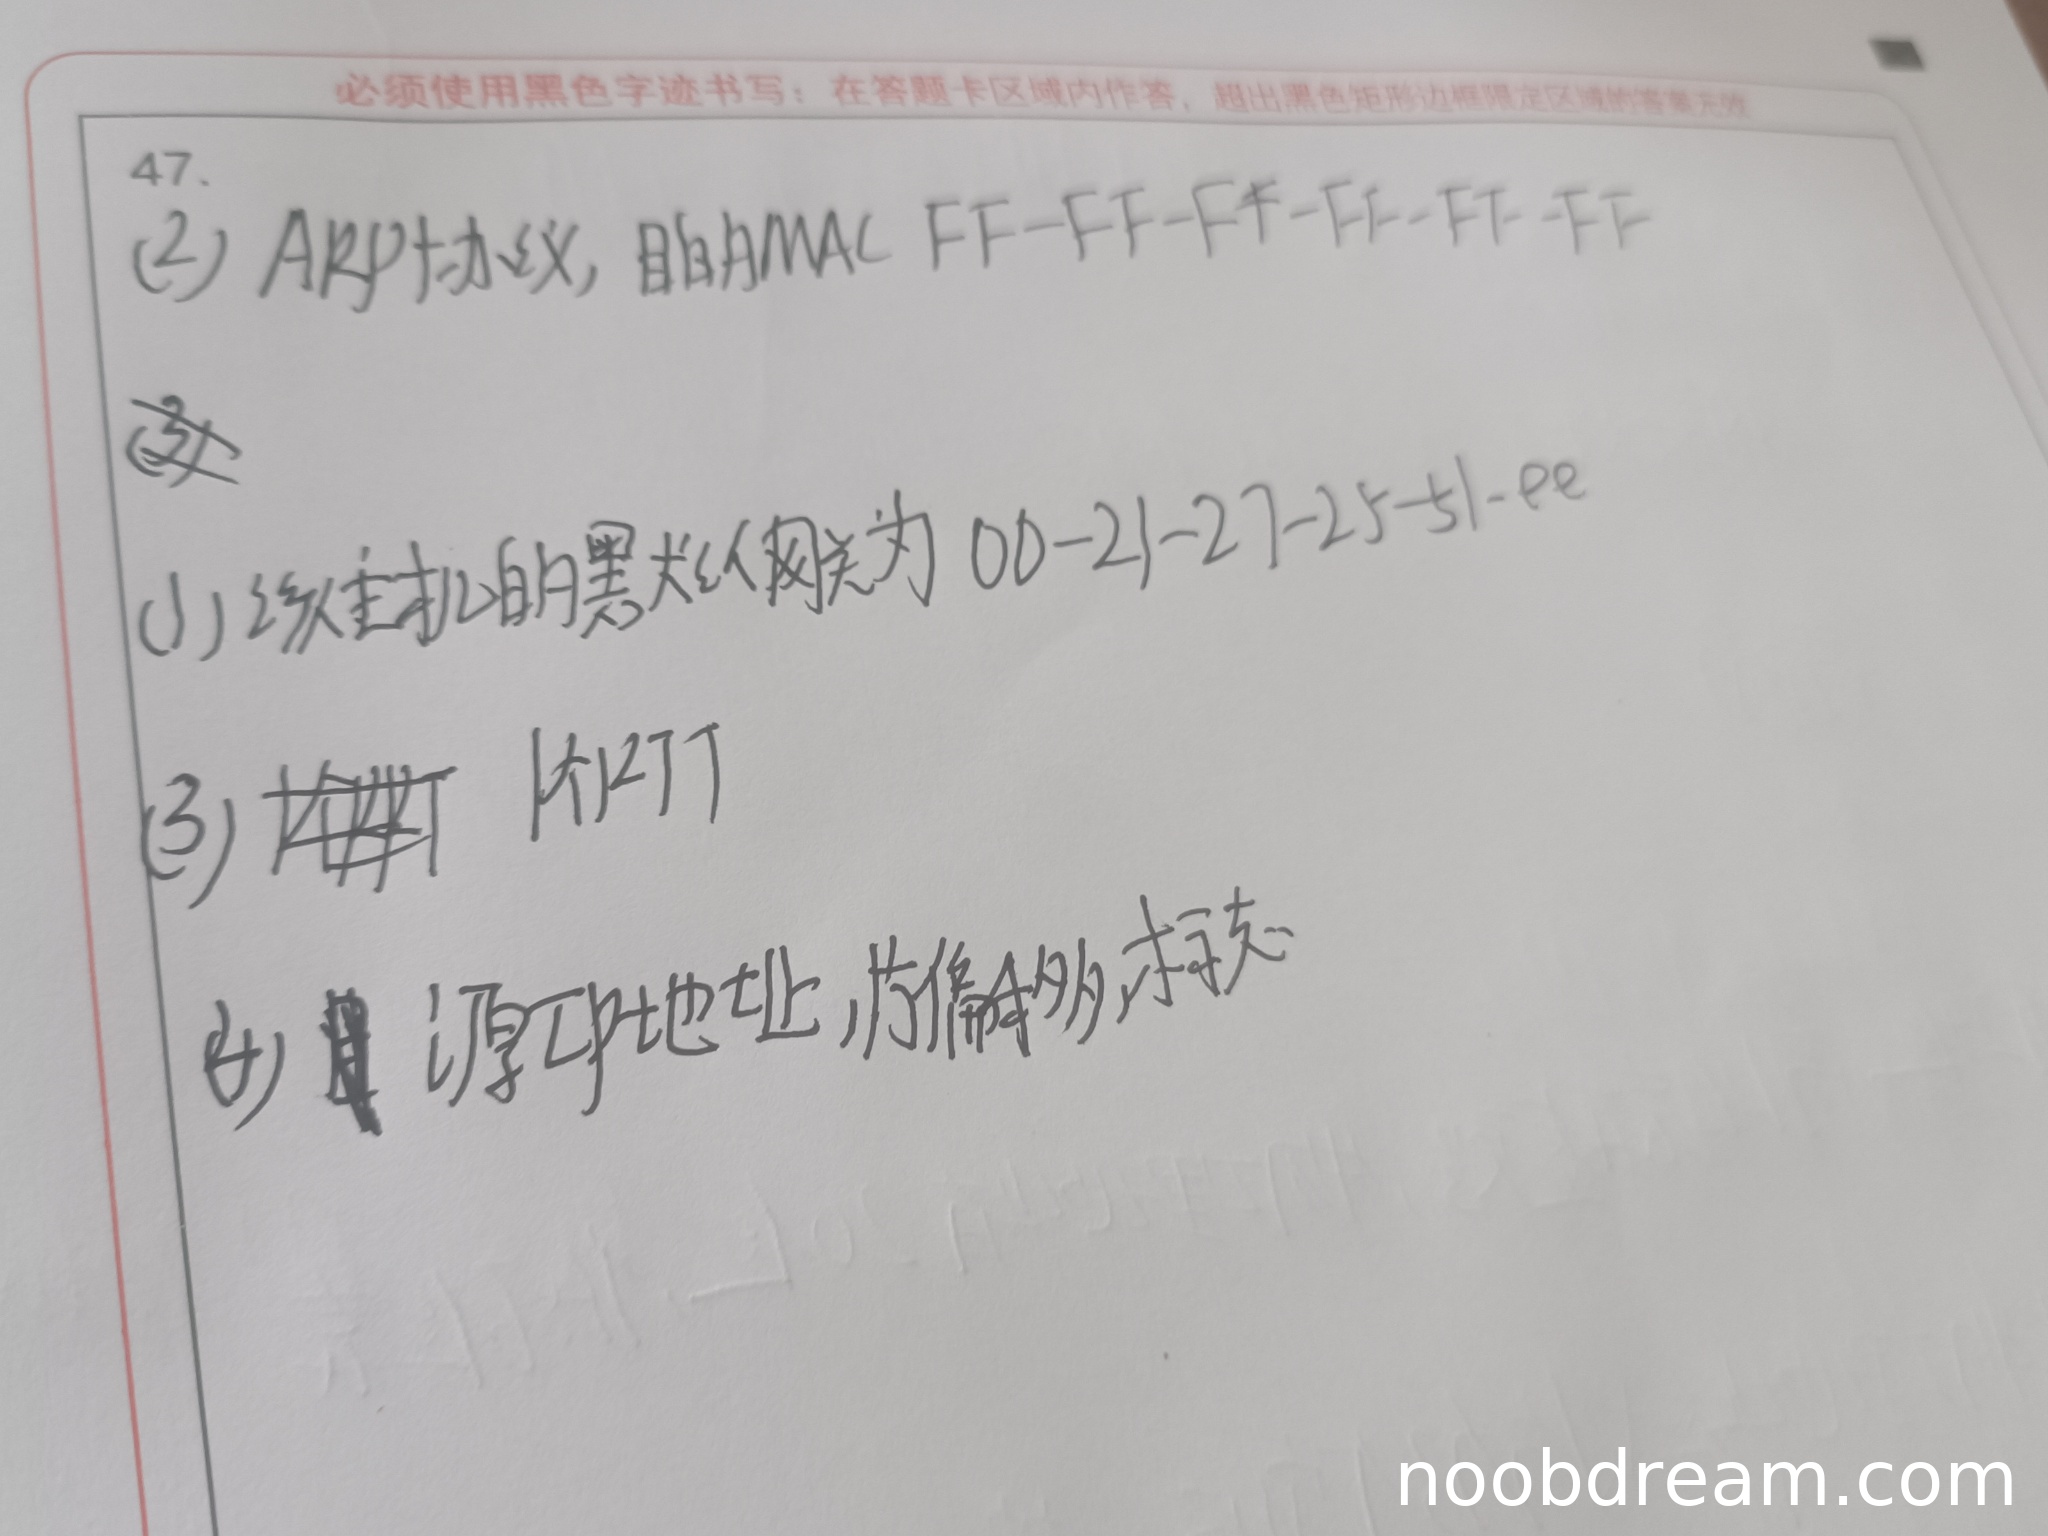 必须使用黑色字迹书写：在答题卡区域内作答，超出黑色矩形边框限定区域的答案无效
47.
(2) ARP协议，目的MAC FF-FF-FF-FF-FF-FF
(3)
(1) 该主机的黑犬认网关为 00-21-27-25-51-ee
(3) 1个RTT
(4) 源IP地址，片偏移，标志
noobdream.com